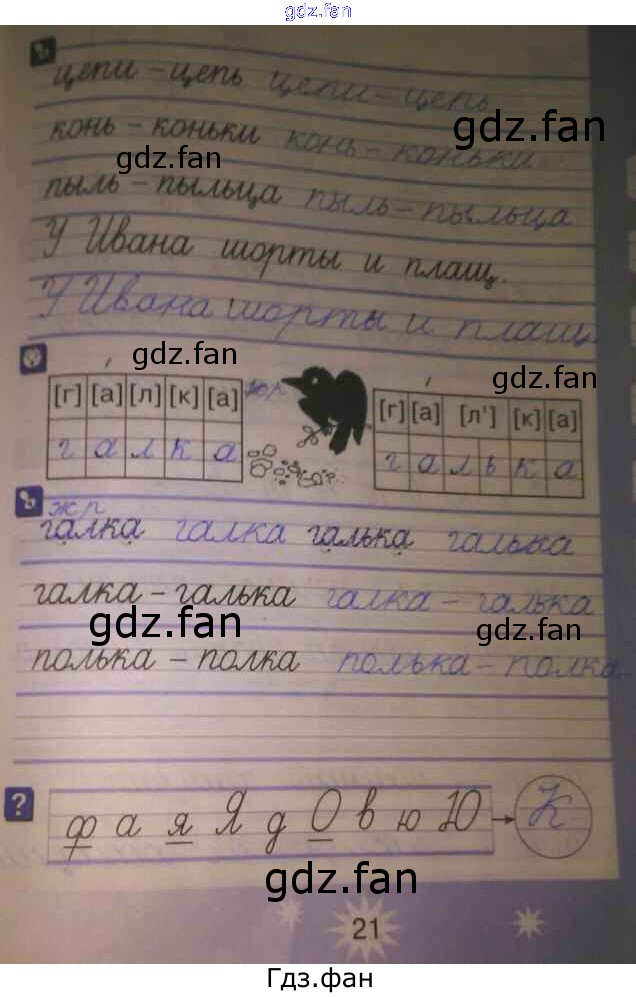 gdz.fan
цепи – цепь цепи – цепь
gdz.fan
конь – коньки конь – коньки
gdz.fan
пыль – пыльца пыль – пыльца
У Ивана шорты и плащ.
У Ивана шорты и плащ.
gdz.fan
gdz.fan
[г] [а] [л] [к] [а] жр [г] [а] [л'] [к] [а]
г а л к а г а л ь к а
жр
галка галка галька галька
галка – галька галка – галька
gdz.fan
gdz.fan
полька – полка полька – полка
? ф а я Я д О в ю Ю К
gdz.fan
21
Гдз.фан